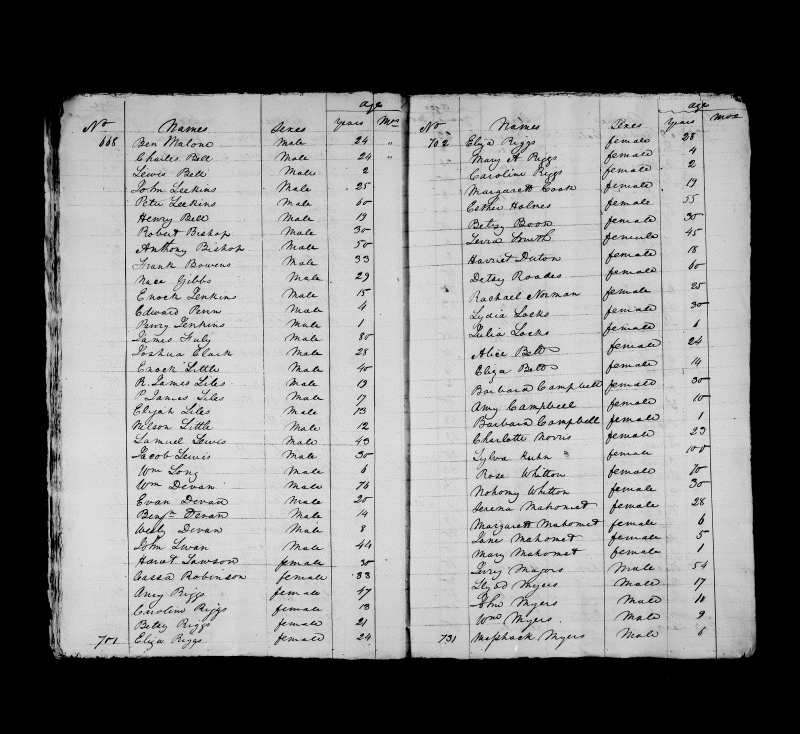 age
No Names Sexes years Mos
668 Ben Malone Male 24 "
Charles Bell Male 24 "
Lewis Bell Male 2
John Leekins Male 25
Peter Leekins Male 60
Henry Bell Male 19
Robert Bishop Male 30
Anthony Bishop Male 50
Frank Bowens Male 33
Nace Gibbs Male 29
Enock Jenkins Male 15
Edward Penn Male 4
Perry Jenkins Male 1
James Male 80
Joshua Clark Male 28
Enock Little Male 40
R. James Liles Male 19
P James Liles Male 17
Elijah Liles Male 13
Nelson Little Male 12
Samuel Lewis Male 43
Jacob Lewis Male 30
Wm Long Male 6
Wm Devan Male 76
Evan Devan Male 20
Benjn Devan Male 14
Wesly Devan Male 8
John Swan Male 44
Lawson female 30
Cassa Robinson female 33
Amy Riggs female 47
Caroline Riggs female 13
Betsy Riggs female 21
701 Eliza Riggs female 24
age
No Names Sexes years mos
702 Eliza Riggs female 28
Mary A Riggs female 4
Caroline Riggs female 2
Margarett Cook female 19
Esther Holmes female 55
Betsy Boon female 30
Smith female 45
Harriet Duton female 18
Betsy Roades female 60
Rachael Norman female 25
Lydia Locks female 30
Julia Locks female 6
Alice Belt female 24
Eliza Belt female 14
Barbara Campbell female 30
Amy Campbell female 10
Barbara Campbell female 1
Charlotte Norris female 23
Sylva Kuhn female 100
Rose Whitton female 70
Nohomy Whitton female 30
Serena Mahomet female 28
Margarett Mahomet female 6
Jane Mahomet female 5
Mary Mahomet female 1
Magors Male 54
Lloyd Myers Male 17
John Myers Male 11
Wm Myers Male 9
731 Meshack Myers Male 6